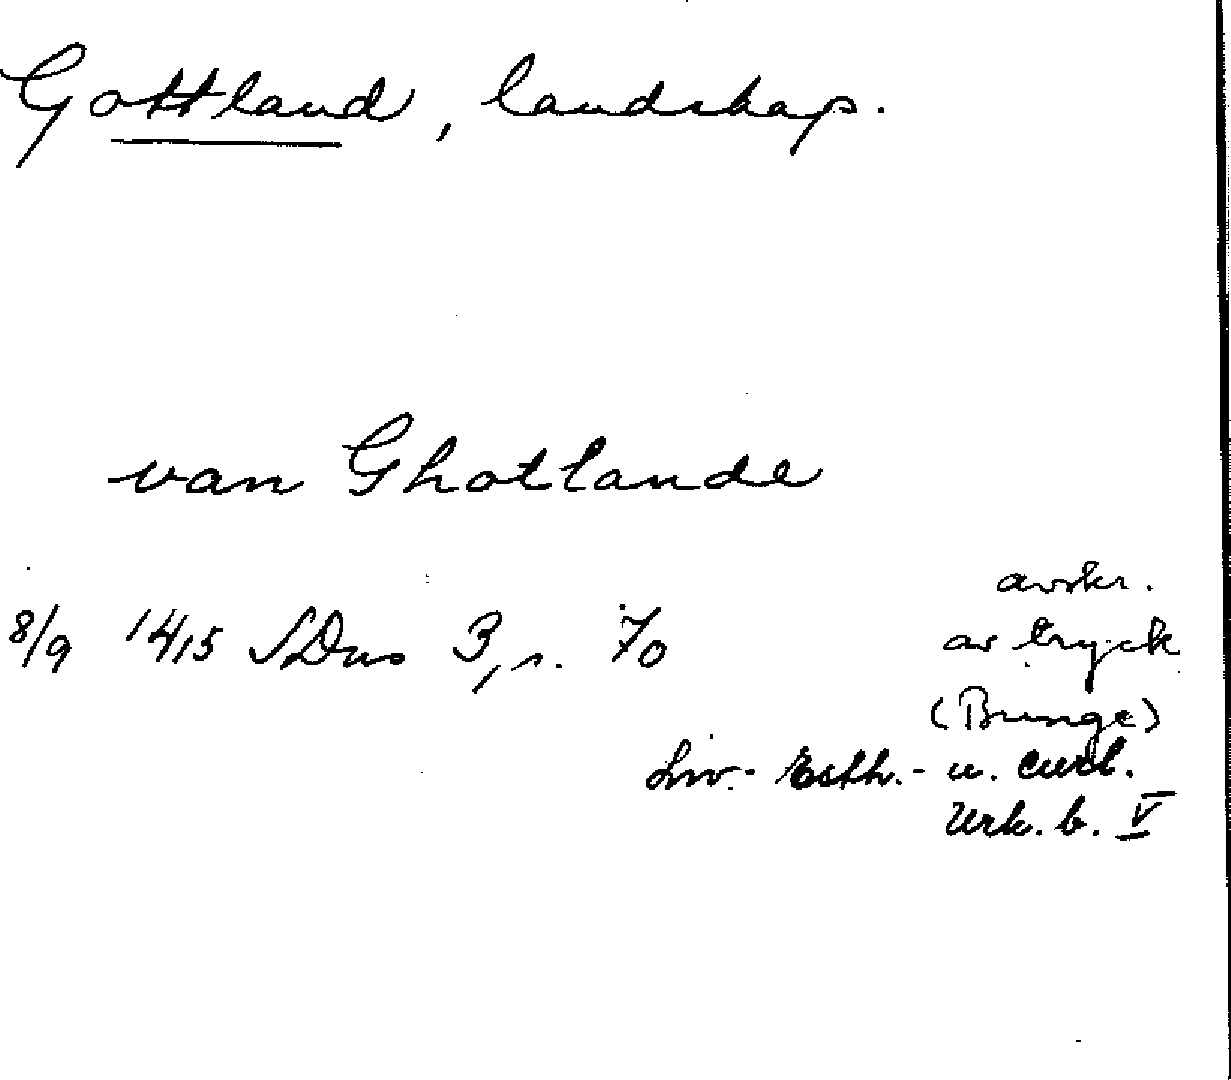 Gottland, landskap.
van Ghotlande
avskr.
8/9 1415 SDns 3, s. 70 av tryck
(Bunge)
Liv.- Esth.- u. Curl.
Urk. b. V